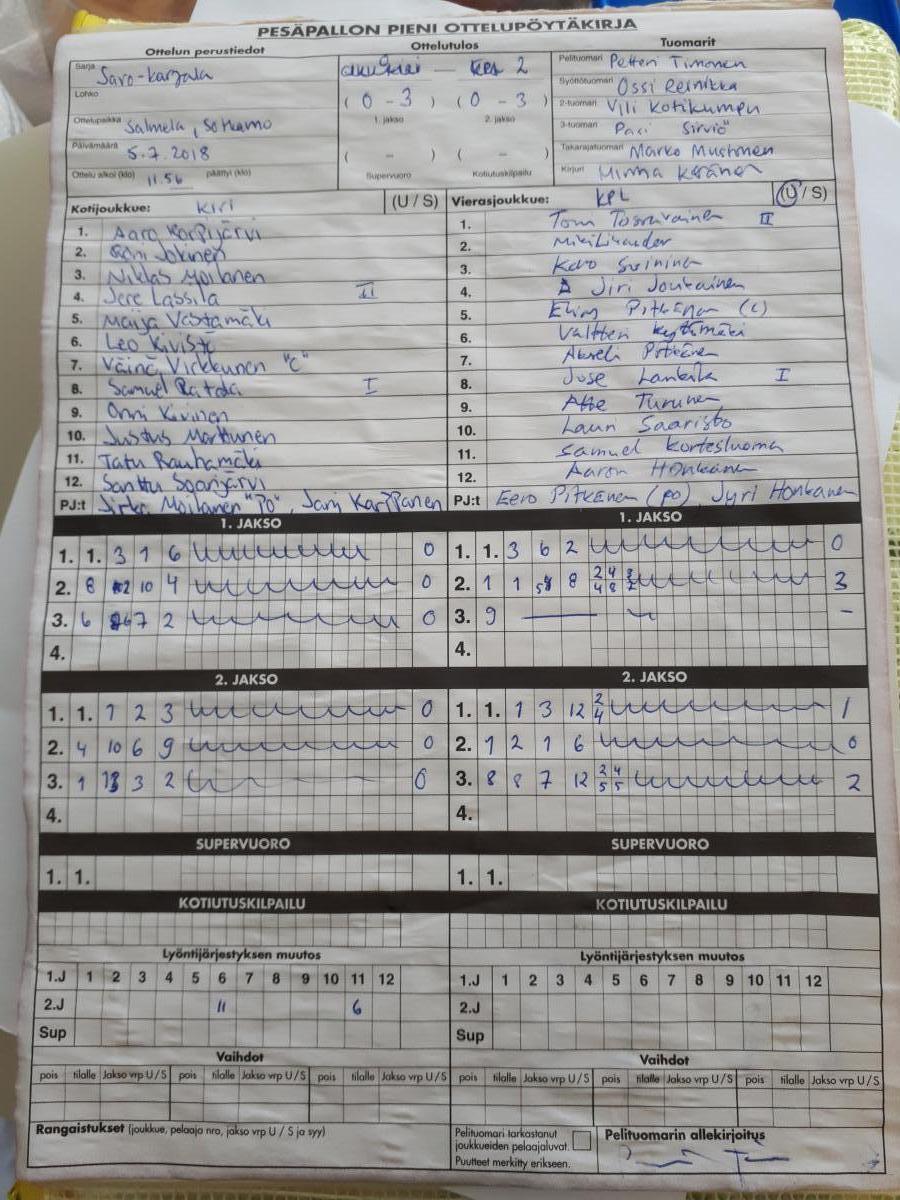 PESÄPALLON PIENI OTTELUPÖYTÄKIRJA
Ottelun perustiedot
Ottelutulos
Tuomarit
Sarja Savo-Karjala
KPL 2
Pelituomari Petteri Timonen
Lohko
( 0 - 3 ) ( 0 - 3 )
Syöttötuomari Ossi Reinikka
1. jakso 2. jakso
2-tuomari Vili Kotikumpu
Ottelupaikka Salmela, Sotkamo
3-tuomari Pasi Sirviö
Päivämäärä 5.7.2018
( - ) ( - )
Takarajatuomari Marko Mustonen
Ottelu alkoi (klo) 11.56 päättyi (klo)
Supervuoro Kotiutuskilpailu
Kirjuri Minna Keränen
Kotijoukkue: KIRI (U / S)
Vierasjoukkue: KPL (U / S)
1. Aaro Korpijärvi
1. Tom II
2. Jokinen
2.
3. Niklas Moilanen
3.
4. Jere Lassila II
4. Jiri
5. Maija Vastamäki
5. Pitkänen (c)
6. Leo Kivistö
6. Valtteri Kyttimäki
7. Väinö Virkkunen "C"
7. Akseli Pitkänen
8. Samuel I
8. Jose I
9. Onni Kivinen
9. Atte Turunen
10. Justus Marttunen
10. Lauri Saaristo
11. Tatu Rauhamäki
11. Samuel Kortesluoma
12. Santtu Saarijärvi
12. Aaron Honkanen
PJ:t Moilanen "PO", Jari Karppanen
PJ:t Eero Pitkänen (po), Jyri Honkanen
1. JAKSO
1. JAKSO
1. 1. 3 1 6 0
1. 1. 3 6 2 0
2. 8 10 4 0
2. 1 1 8 2 4 4 8 3
3. 6 7 2 0
3. 9 -
4.
4.
2. JAKSO
2. JAKSO
1. 1. 1 2 3 0
1. 1. 1 3 12 2 4 1
2. 4 10 6 9 0
2. 1 2 1 6 0
3. 1 3 2 0
3. 8 8 7 12 2 5 4 5 2
4.
4.
SUPERVUORO
SUPERVUORO
1. 1.
1. 1.
KOTIUTUSKILPAILU
KOTIUTUSKILPAILU
Lyöntijärjestyksen muutos
Lyöntijärjestyksen muutos
1.J 1 2 3 4 5 6 7 8 9 10 11 12
1.J 1 2 3 4 5 6 7 8 9 10 11 12
2.J 11 6
2.J
Sup
Sup
Vaihdot
Vaihdot
pois tilalle Jakso vrp U/S pois tilalle Jakso vrp U/S pois tilalle Jakso vrp U/S
pois tilalle Jakso vrp U/S pois tilalle Jakso vrp U/S pois tilalle Jakso vrp U/S
Rangaistukset (joukkue, pelaaja nro, jakso vrp U / S ja syy)
Pelituomari tarkastanut
joukkueiden pelaajaluvat.
Puutteet merkitty erikseen.
Pelituomarin allekirjoitus